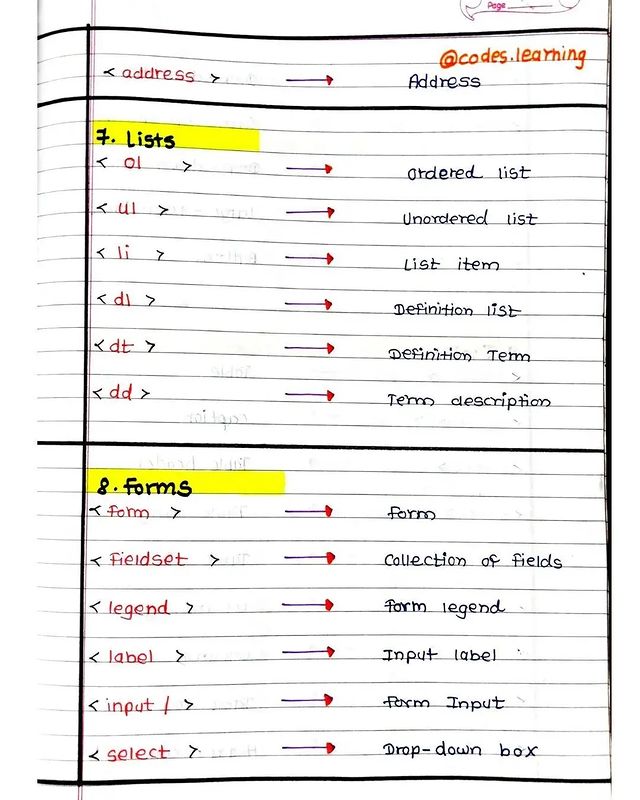 Page
@codes.learning
< address > → Address
7. Lists
< ol > → ordered list
< ul > → Unordered list
< li > → List item
< dl > → Definition list
< dt > → Definition Term
< dd > → Term description
8. Forms
< form > → form
< fieldset > → collection of fields
< legend > → form legend
< label > → Input label
< input / > → form Input
< select > → Drop-down box